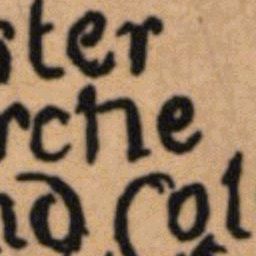 ster
rche
nd Col